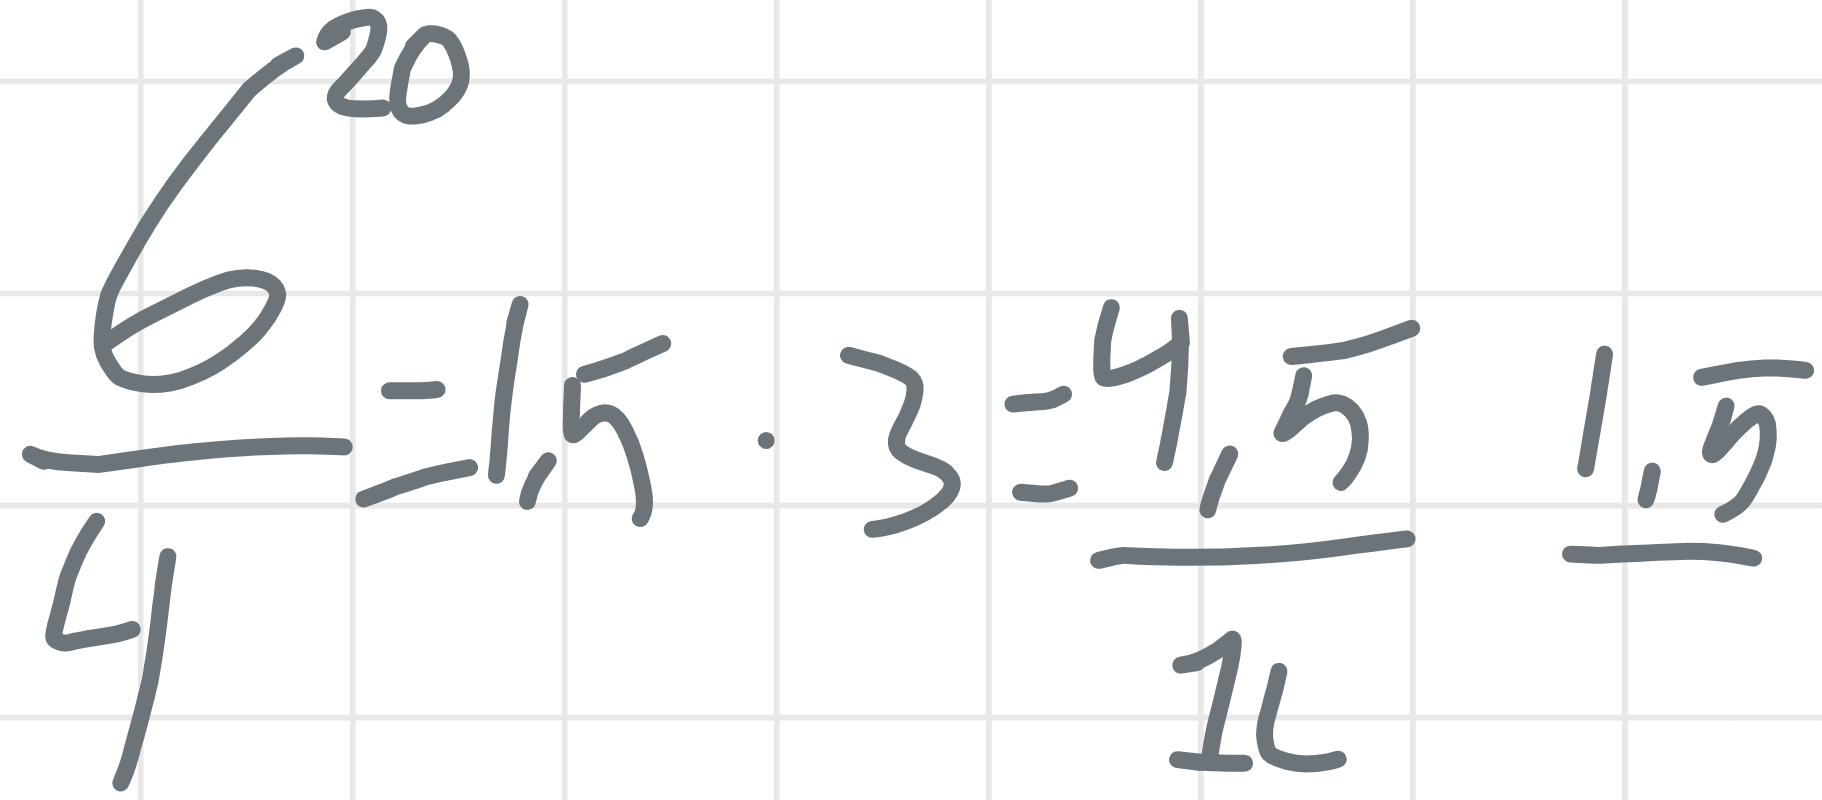 6²⁰/4 = 1,5 · 3 = 4,5 1,5
1L